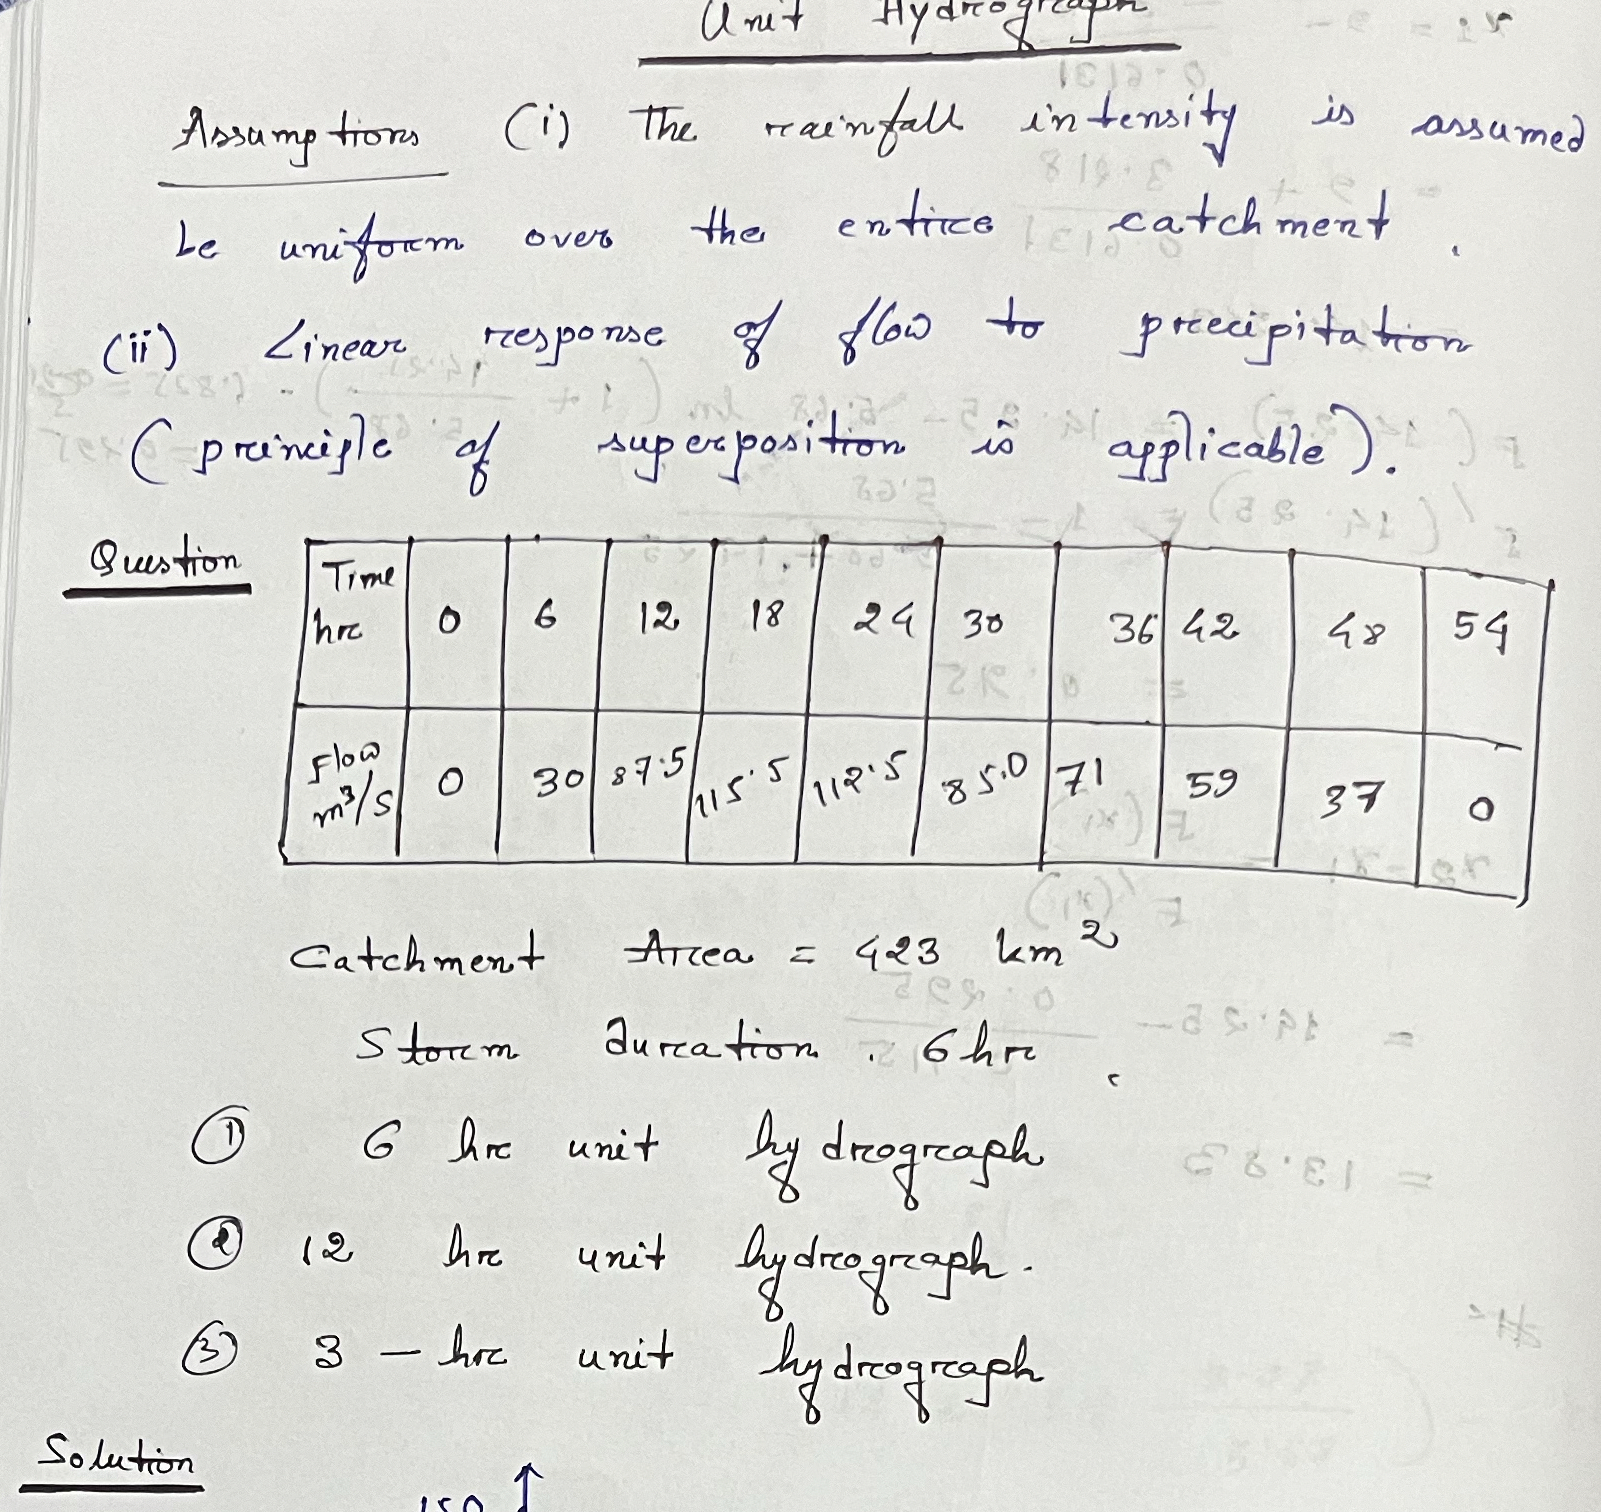 Unit Hydrograph
Assumptions (i) The rainfall intensity is assumed
be uniform over the entire catchment.
(ii) Linear response of flow to precipitation
(principle of superposition is applicable).
Question
Time hr 0 6 12 18 24 30 36 42 48 54
Flow m³/s 0 30 87.5 115.5 112.5 85.0 71 59 37 0
Catchment Area = 423 km²
Storm duration. 6 hr.
① 6 hr unit hydrograph
② 12 hr unit hydrograph.
③ 3 - hr unit hydrograph
Solution
150